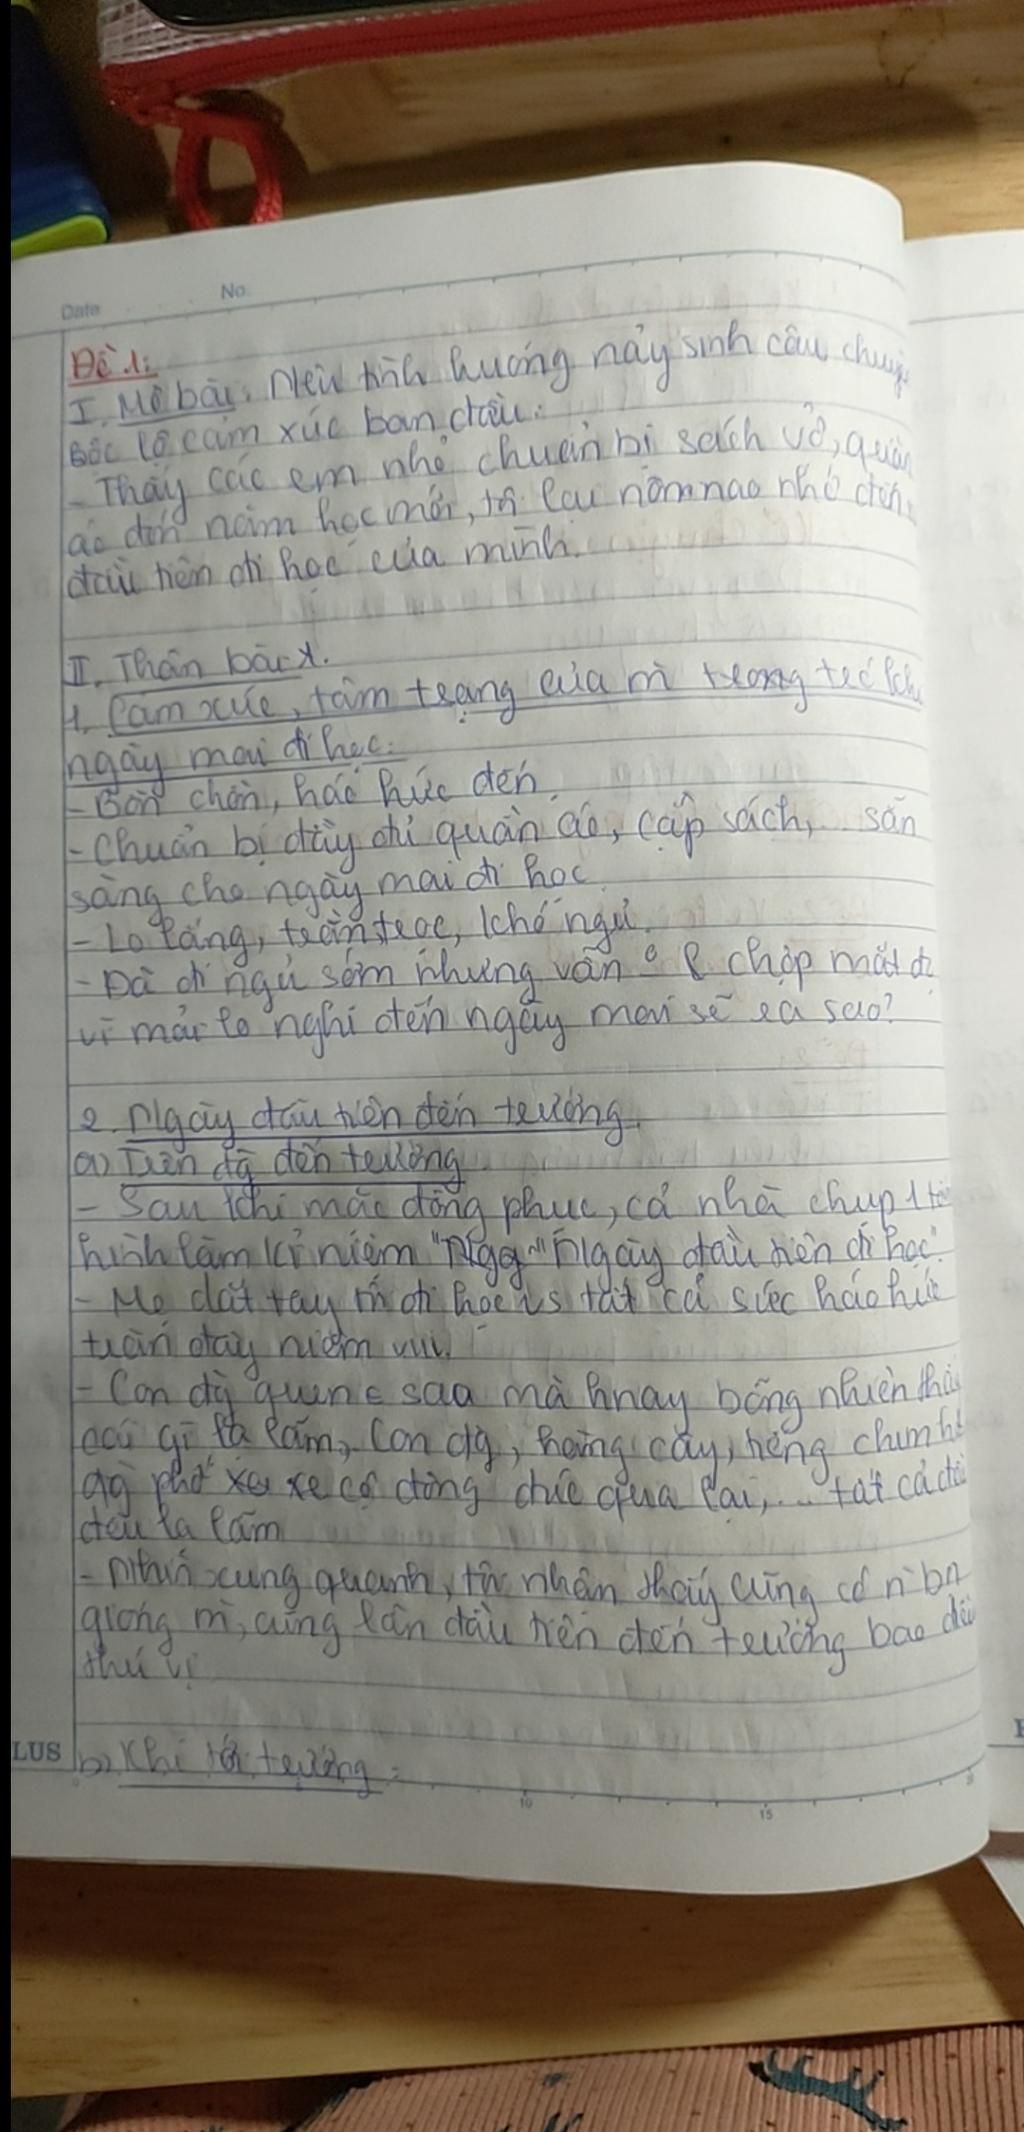 Date No.
Đề 1:
I. Mở bài: Nêu tình huống nảy sinh câu
Bộc lộ cảm xúc ban đầu:
- Thấy các em nhỏ chuẩn bị sách vở, quần
áo đón năm học mới, tôi lại nôn nao nhớ đến
đầu tiên đi học của mình.
II. Thân bài
1. Cảm xúc, tâm trạng của mì trong trc
ngày mai đi học:
- Bồn chồn, háo hức đến
- Chuẩn bị đầy đủ quần áo, cặp sách, ... sẵn
sàng cho ngày mai đi học.
- Lo lắng, trằn trọc, khó ngủ.
- Đã đi ngủ sớm nhưng vẫn o chợp mắt đc
vì mải lo nghĩ đến ngày mai sẽ ra sao?
2. Ngày đầu tiên đến trường.
a) Trên đg đến trường
- Sau khi mặc đồng phục, cả nhà chụp 1
hình làm kỉ niệm "Ngày đầu tiên đi học".
- Mẹ dắt tay đi học vs tất cả sức háo hức
tràn đầy niềm vui.
- Con đg quen sao mà hnay bỗng nhiên thấy
cái gì lạ lắm, Con đg, hàng cây,
đg phố xe cộ đông đúc qua lại, ... tất cả
đều lạ lắm
- Nhìn xung quanh, tôi nhận thấy cũng có n~ bn
giống mì, cũng lần đầu tiên đến trường bao điều
thú vị
LUS
b) Khi tới trường:
10 15